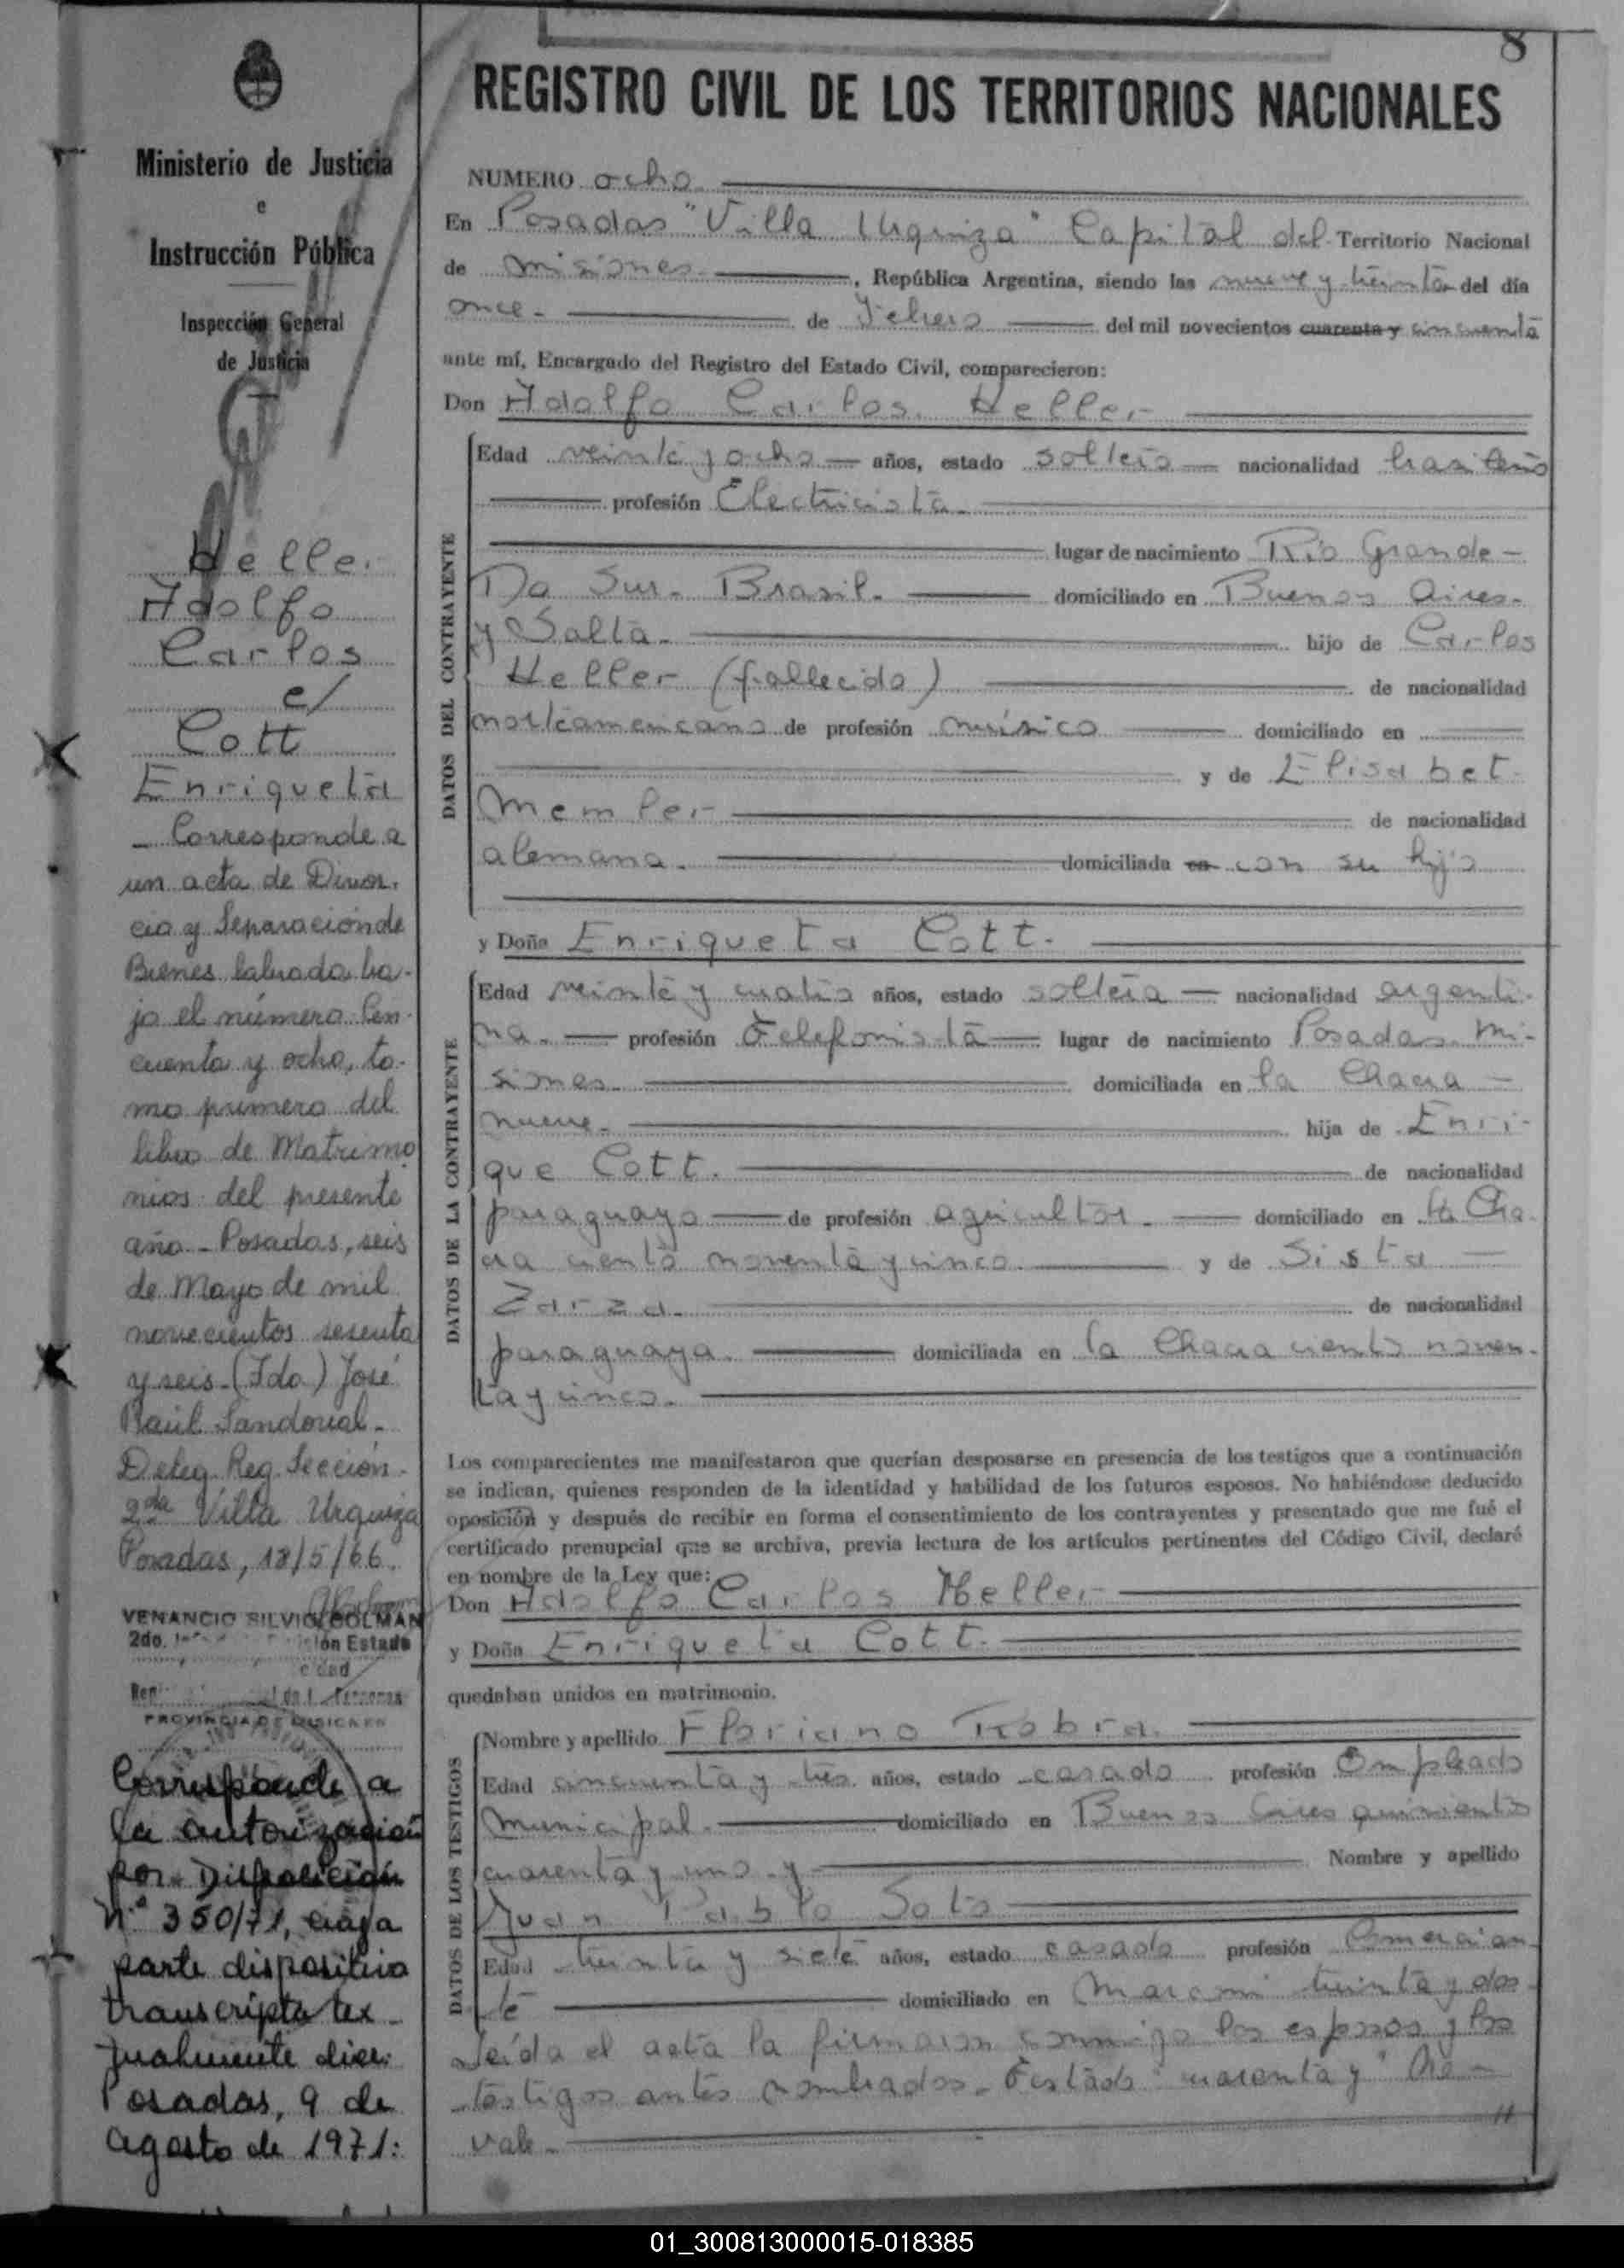 8
Ministerio de Justicia
e
Instrucción Pública
Inspección General
de Justicia
Heller
Adolfo
Carlos
c/
Cott
Enriqueta
- Corresponde a
un acta de Divor-
cio y Separación de
Bienes labrada ba-
jo el número Cin-
cuenta y ocho, to-
mo primero del
libro de Matrimo
nios del presente
año - Posadas, seis
de Mayo de mil
novecientos sesenta
y seis - (Fdo) José
Raúl Sandoval -
Deleg. Reg. Sección
2da Villa Urquiza
Posadas, 18/5/66.
VENANCIO SILVIO COLMAN
2do.
PROVINCIA DE MISIONES
Corresponde a
la autorización
por Disposición
N° 350/71, cuya
parte dispositiva
transcripta tex-
tualmente dice:
Posadas, 9 de
agosto de 1971:
REGISTRO CIVIL DE LOS TERRITORIOS NACIONALES
NUMERO ocho
En Posadas "Villa Urquiza" Capital del Territorio Nacional
de Misiones, República Argentina, siendo las nueve y treinta del día
once - de Febrero del mil novecientos cuarenta y cincuenta
ante mí, Encargado del Registro del Estado Civil, comparecieron:
Don Adolfo Carlos Heller
DATOS DEL CONTRAYENTE
Edad veinte y ocho años, estado soltero nacionalidad brasileño
profesión Electricista
lugar de nacimiento Rio Grande -
Do Sur. Brasil. domiciliado en Buenos Aires
y Salta. hijo de Carlos
Heller (fallecido) de nacionalidad
norteamericano de profesión músico domiciliado en
y de Elisabet
Memler de nacionalidad
alemana. domiciliada en con su hijo
y Doña Enriqueta Cott.
DATOS DE LA CONTRAYENTE
Edad veinte y cuatro años, estado soltera nacionalidad argenti-
na. profesión Telefonista lugar de nacimiento Posadas Mi-
siones. domiciliada en la Chacra
nueve. hija de Enri-
que Cott. de nacionalidad
paraguayo de profesión agricultor. domiciliado en la Cha-
cra ciento noventa y cinco. y de Sista
Zarza. de nacionalidad
paraguaya. domiciliada en la Chacra ciento noven-
ta y cinco.
Los comparecientes me manifestaron que querían desposarse en presencia de los testigos que a continuación
se indican, quienes responden de la identidad y habilidad de los futuros esposos. No habiéndose deducido
oposición y después de recibir en forma el consentimiento de los contrayentes y presentado que me fué el
certificado prenupcial que se archiva, previa lectura de los artículos pertinentes del Código Civil, declaré
en nombre de la Ley que:
Don Adolfo Carlos Heller
y Doña Enriqueta Cott.
quedaban unidos en matrimonio.
DATOS DE LOS TESTIGOS
Nombre y apellido Floriano Robra.
Edad cincuenta y tres años, estado casado profesión Empleado
Municipal. domiciliado en Buenos Aires quinientos
cuarenta y uno. y Nombre y apellido
Juan Pablo Soto
Edad treinta y siete años, estado casado profesión Comercian-
te domiciliado en Marconi treinta y dos.
Leída el acta la firmaron conmigo los esposos y los
testigos antes nombrados. Testado "cuarenta y" No
vale.
01_300813000015-018385